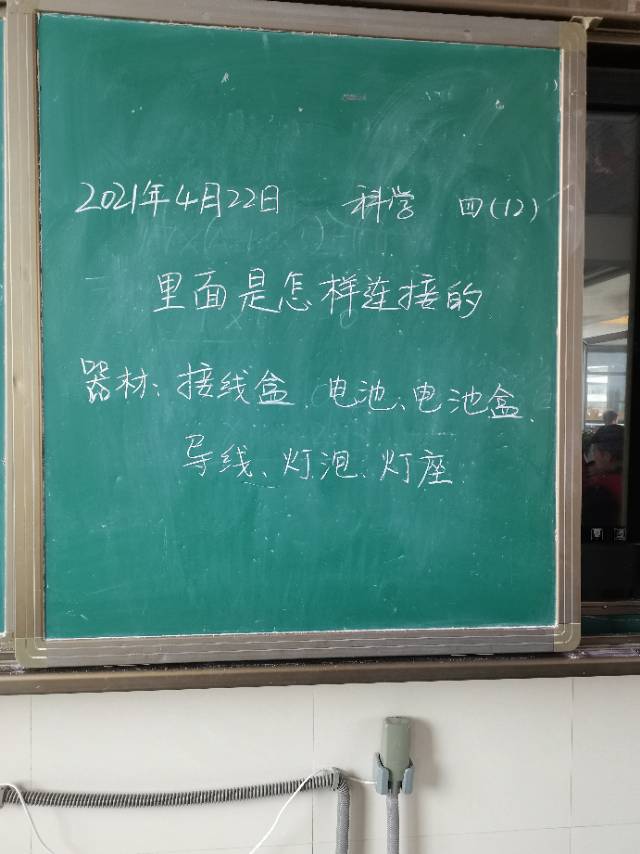 2021年4月22日 科学 四(12)
里面是怎样连接的
器材：接线盒、电池、电池盒、
导线、灯泡、灯座